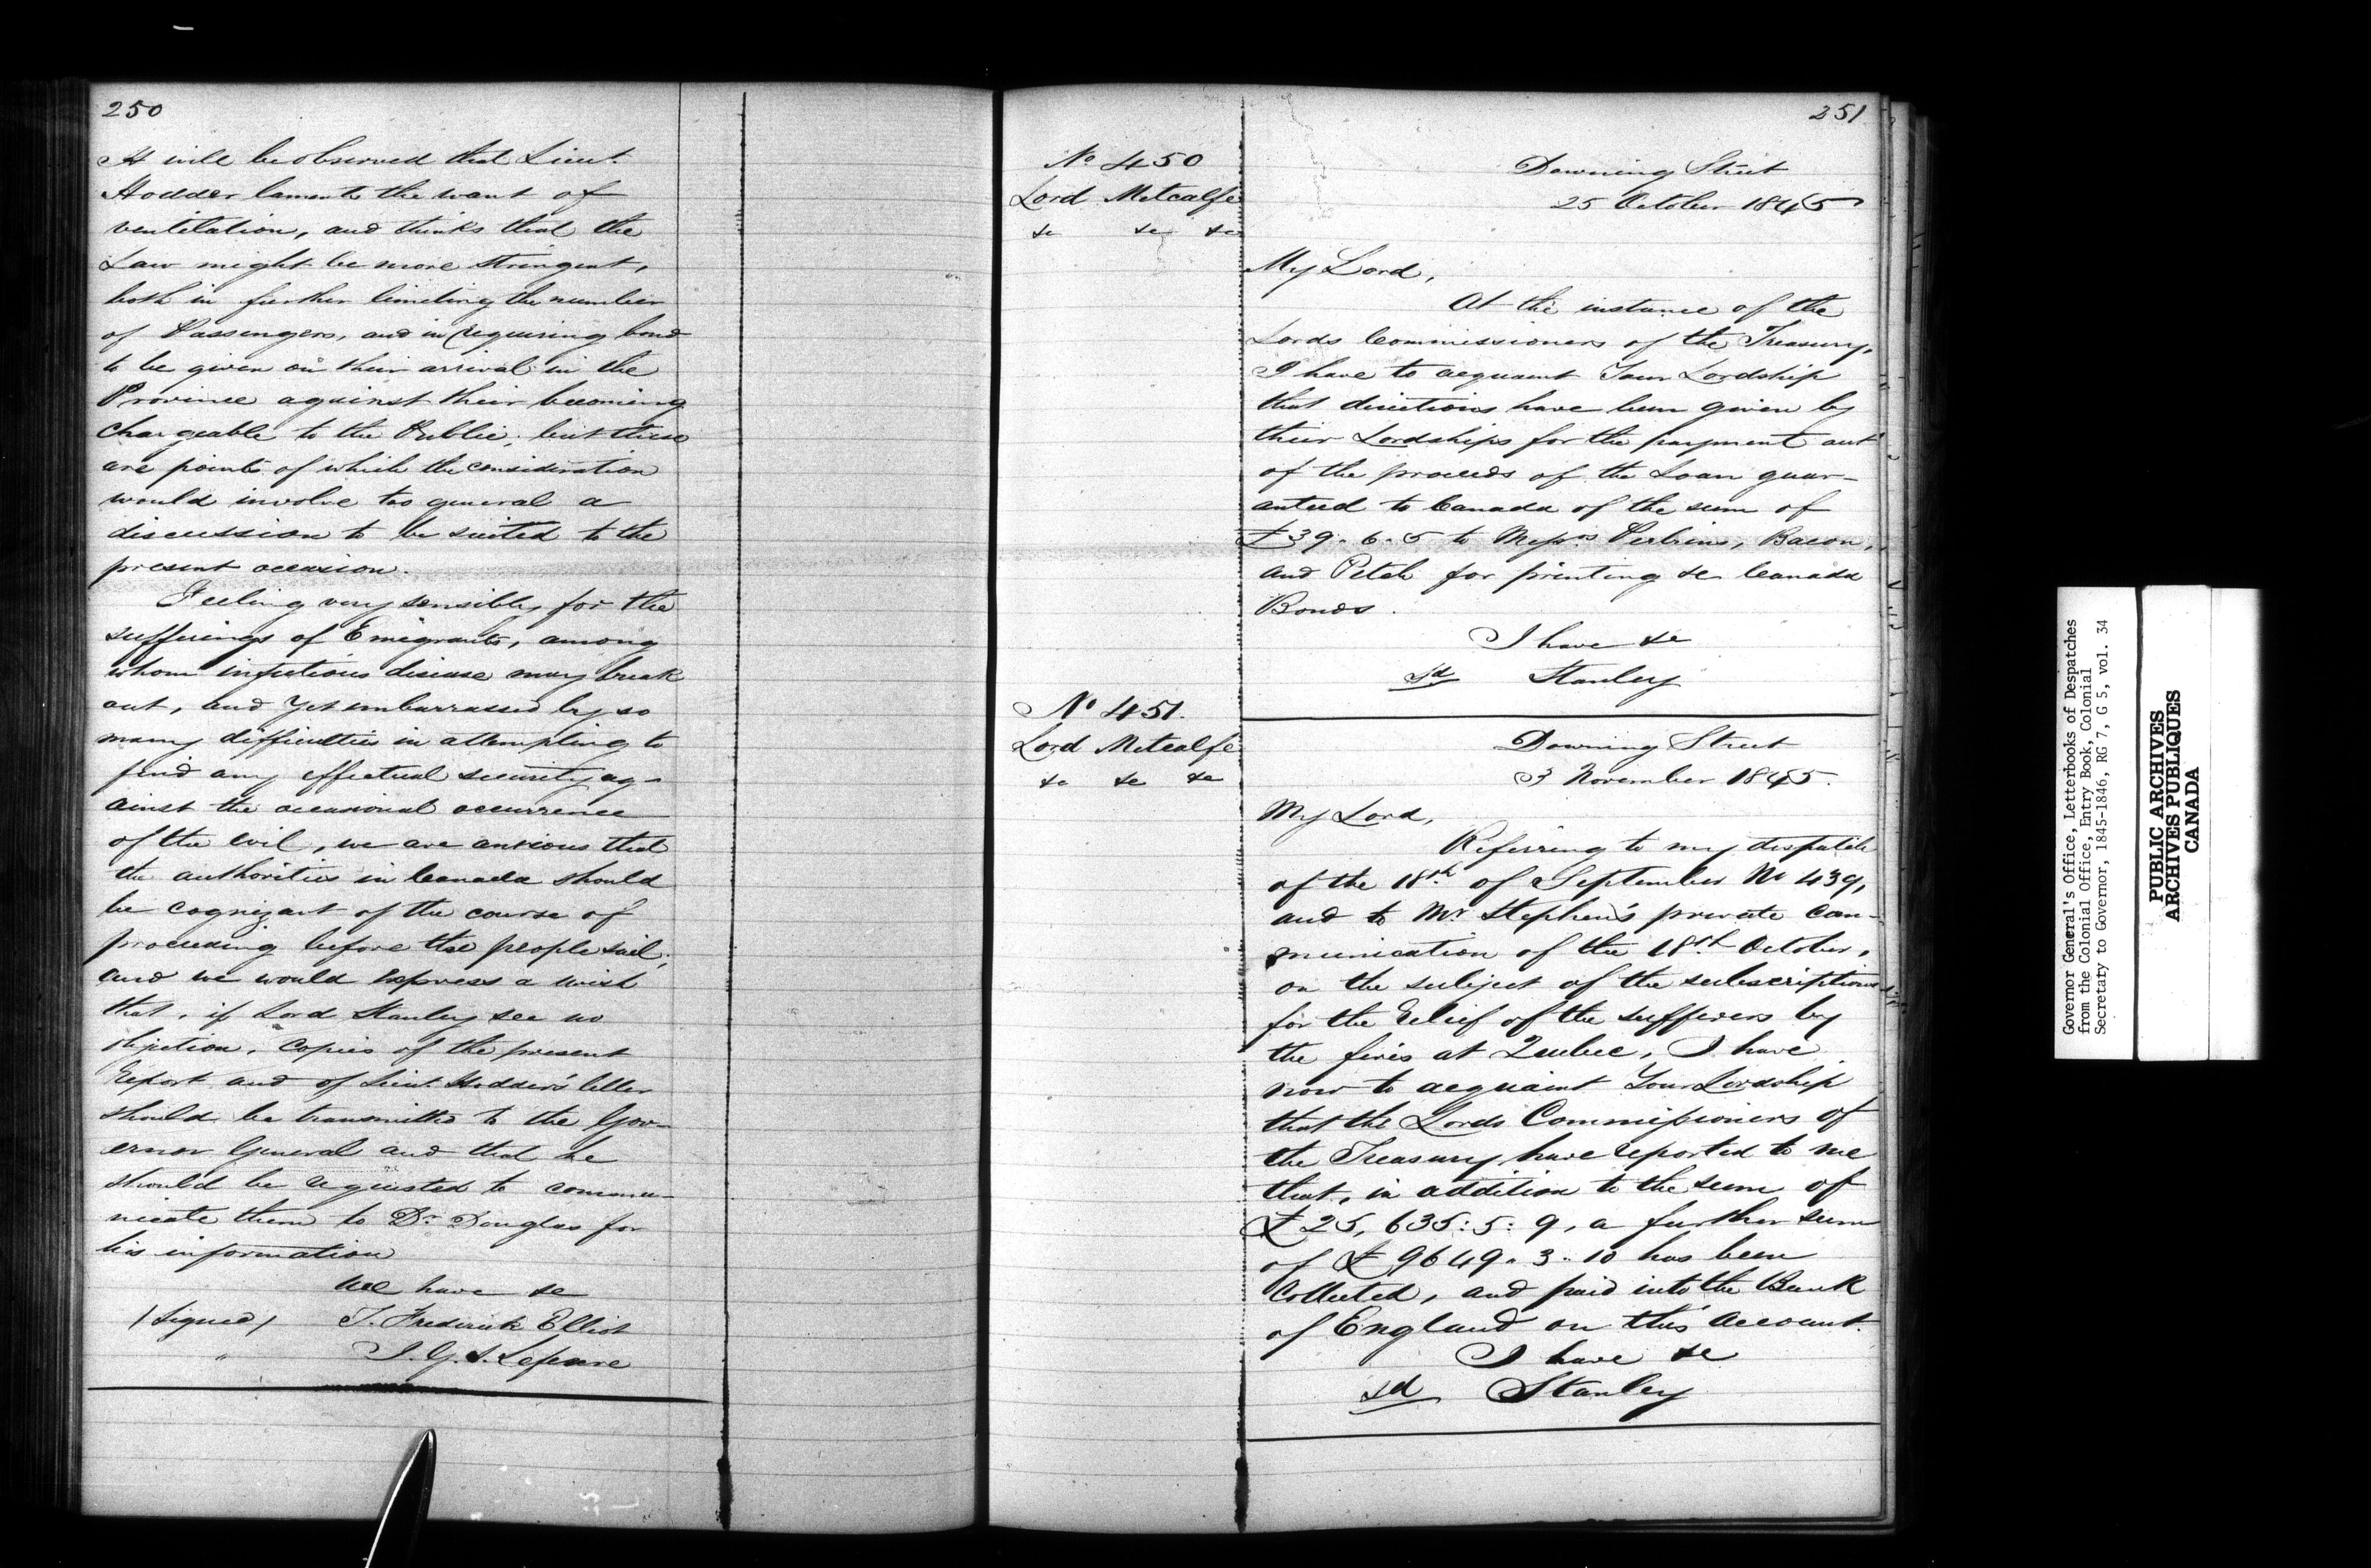 250
It will be observed that Lieut.
Hodder laments the want of
ventilation, and thinks that the
Law might be more stringent,
both in further limiting the number
of Passengers, and in requiring bond
to be given on their arrival in the
Province against their becoming
chargeable to the Public; but these
are points of which the consideration
would involve too general a
discussion to be suited to the
present occasion.
Feeling very sensibly for the
sufferings of Emigrants, among
whom infectious disease may break
out, and yet embarrassed by so
many difficulties in attempting to
find any effectual security ag-
ainst the occasional occurrence
of the evil, we are anxious that
the authorities in Canada should
be cognizant of the course of
proceeding before the people sail;
and we would express a wish
that, if Lord Stanley see no
objection, Copies of the present
Report and of Lieut. Hodder's letter
should be transmitted to the Gov-
ernor General and that he
should be requested to commu-
nicate them to Dr. Douglas for
his information
We have &c
(Signed) T. Frederick Elliot
" J. G. S. Lefevre
251
No 450
Lord Metcalfe
&c &c &c
Downing Street
25 October 1845
My Lord,
At the instance of the
Lords Commissioners of the Treasury,
I have to acquaint Your Lordship
that directions have been given by
their Lordships for the payment out
of the proceeds of the Loan guar-
anteed to Canada of the sum of
£39. 6. 5 to Messrs Perkins, Bacon,
and Petch for printing &c Canada
Bonds.
I have &c
sd Stanley
No 451.
Lord Metcalfe
&c &c &c
Downing Street
3 November 1845.
My Lord,
Referring to my despatch
of the 18th of September No 439,
and to Mr Stephen's private com-
munication of the 18th October,
on the subject of the subscriptions
for the relief of the sufferers by
the fires at Quebec, I have
now to acquaint Your Lordship
that the Lords Commissioners of
the Treasury have reported to me
that, in addition to the sum of
£25,635:5:9, a further sum
of £9649. 3. 10 has been
Collected, and paid into the Bank
of England on this account.
I have &c
sd Stanley
Governor General's Office, Letterbooks of Despatches
from the Colonial Office, Entry Book, Colonial
Secretary to Governor, 1845-1846, RG 7, G 5, vol. 34
PUBLIC ARCHIVES
ARCHIVES PUBLIQUES
CANADA